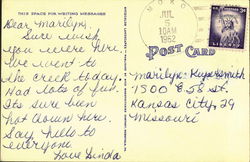 THIS SPACE FOR WRITING MESSAGES
Dear Marilyn,
Sure wish
you were here.
We went to
the creek today.
Had lots of fun.
Its sure been
hot down here.
Say hello to
everyone.
Love Linda
JUL
5
10AM
1962
POST CARD
Marilyn Kupersmith
1500 E 58 st.
Kansas City, 29
Missouri
LIBERTY